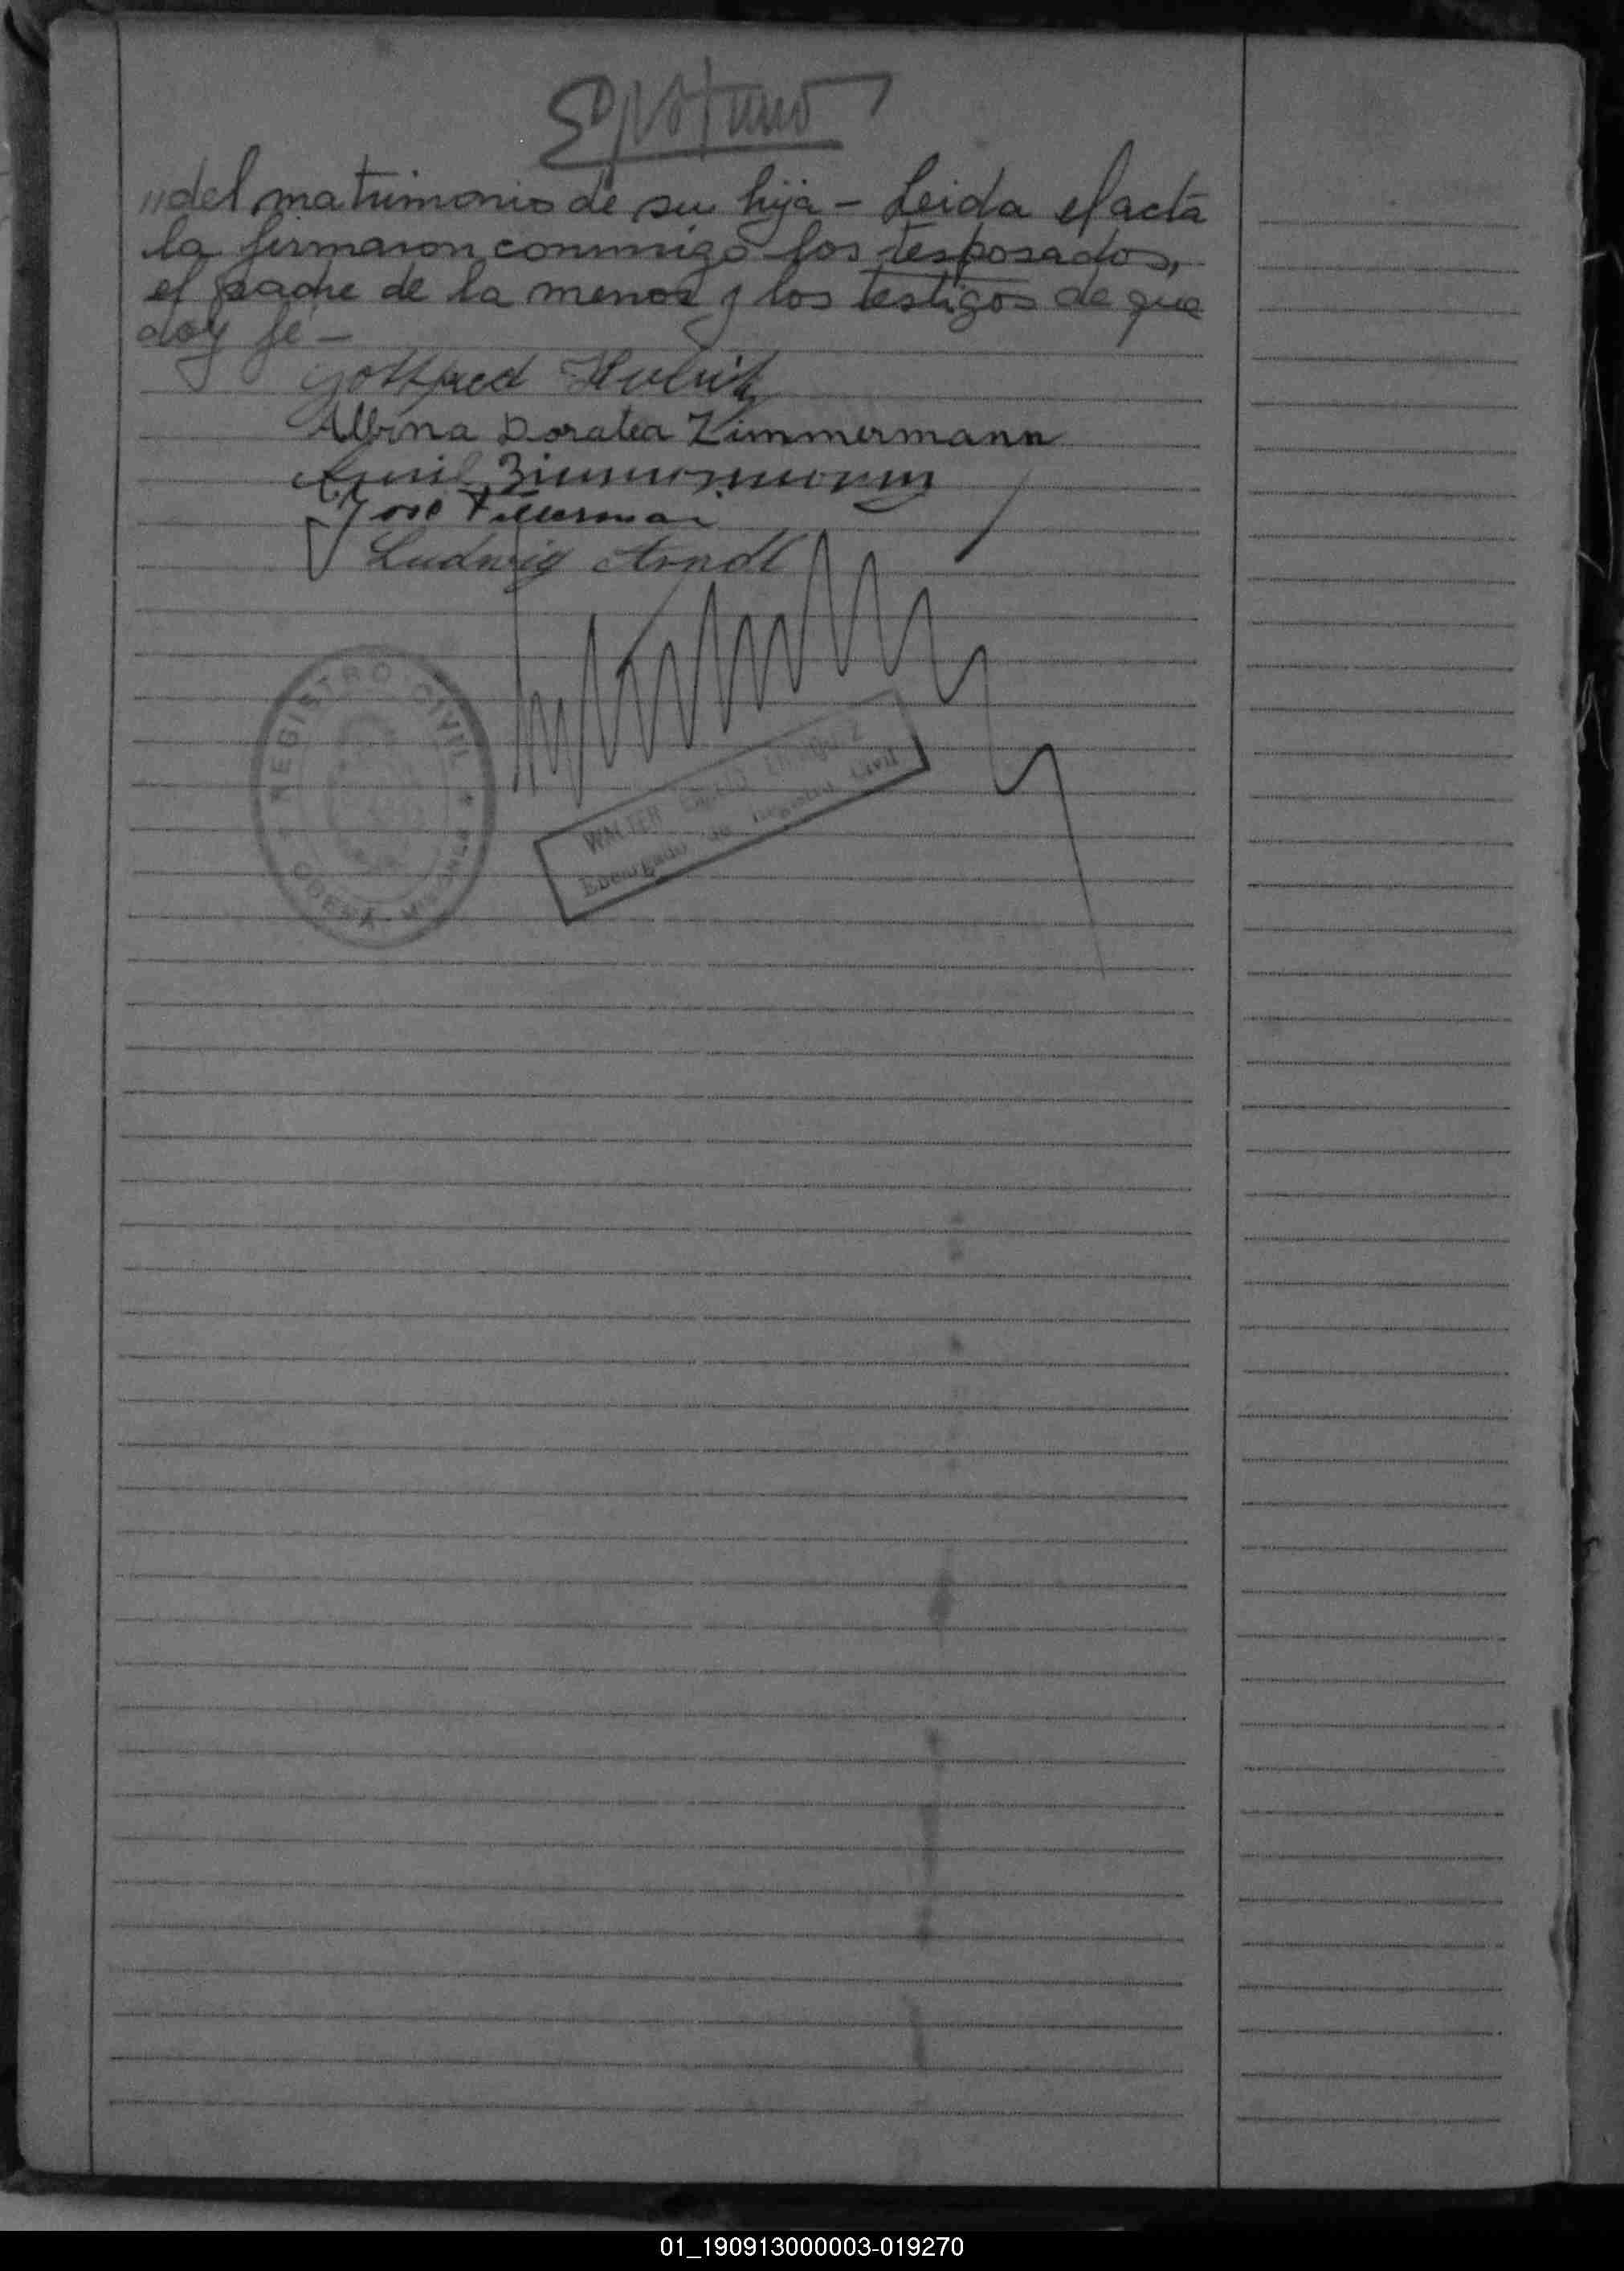 "del matrimonio de su hija - Leida el acta
la firmaron conmigo los desposados,
el padre de la menor y los testigos de que
doy fé -
Gottfred
Albina Doratea Zimmermann
Zimmermann
José
Ludwig Arndt
REGISTRO CIVIL
OBERÁ - MISIONES
WALTER
Encargado de Registro Civil
01_190913000003-019270